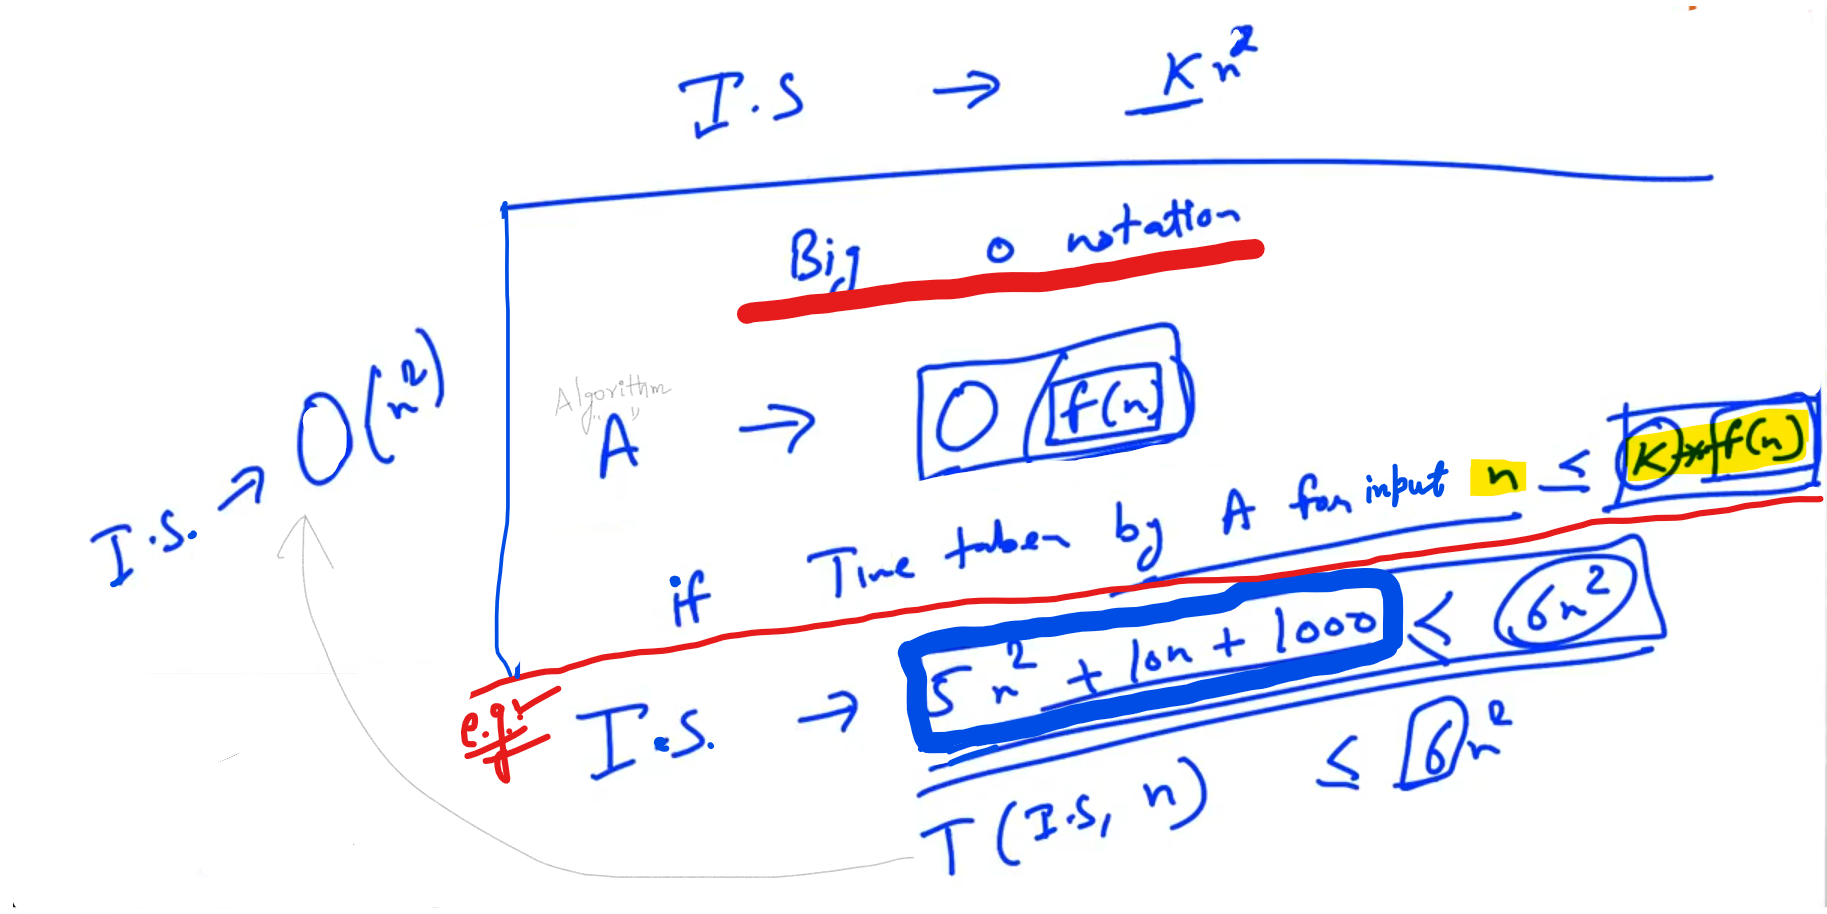 I.S → Kn²
Big O notation
Algorithm
"A" → O(f(n))
I.S. → O(n²)
if Time taken by A for input n ≤ K*f(n)
e.g:- I.S. → 5n² + 10n + 1000 ≤ 6n²
T(I.S, n) ≤ 6n²